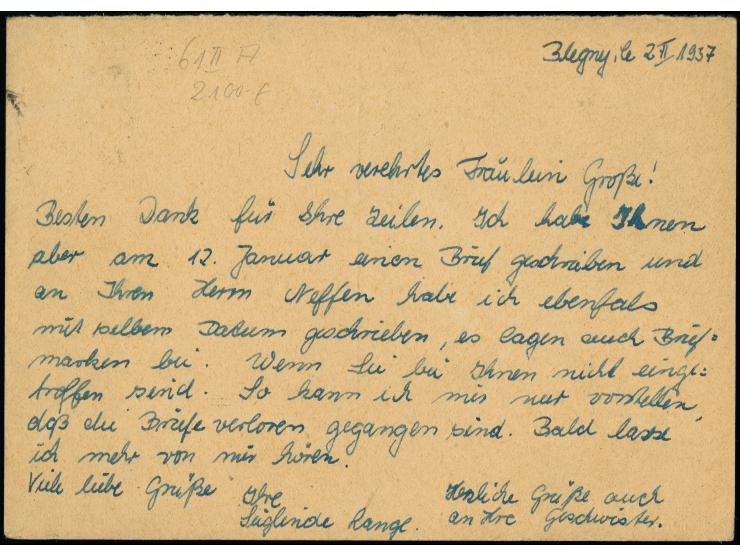 61 II A
2100.-€
Blegny, le 2 II 1937
Sehr verehrtes Fräulein Große!
Besten Dank für Ihre Zeilen. Ich habe Ihnen
aber am 12. Januar einen Brief geschrieben und
an Ihren Herrn Neffen habe ich ebenfals
mit selbem Datum geschrieben, es lagen auch Brief=
marken bei. Wenn Sie bei Ihnen nicht einge=
troffen sind. So kann ich mir nur vorstellen,
daß die Briefe verloren gegangen sind. Bald lasse
ich mehr von mir hören.
Viele liebe Grüße Ihre
Sieglinde Lange.
Herzliche Grüße auch
an Ihre Geschwister.